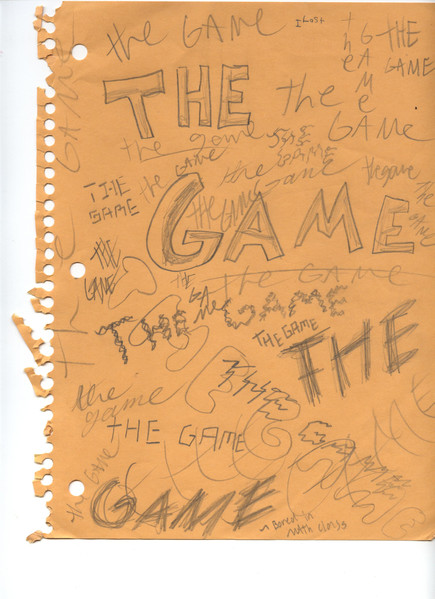 the GAME
I Lost
the
GAME
THE
GAME
THE
the
the
GAME
the game
the
GAME
the game
THE
GAME
the
GAME
the
game
the
GAME
the game
THE
GAME
GAME
THE
GAME
the GAME
THE
GAME
THE
GAME
THE GAME
THE
the
game
THE GAME
the GAME
GAME
~ Bored in
math class